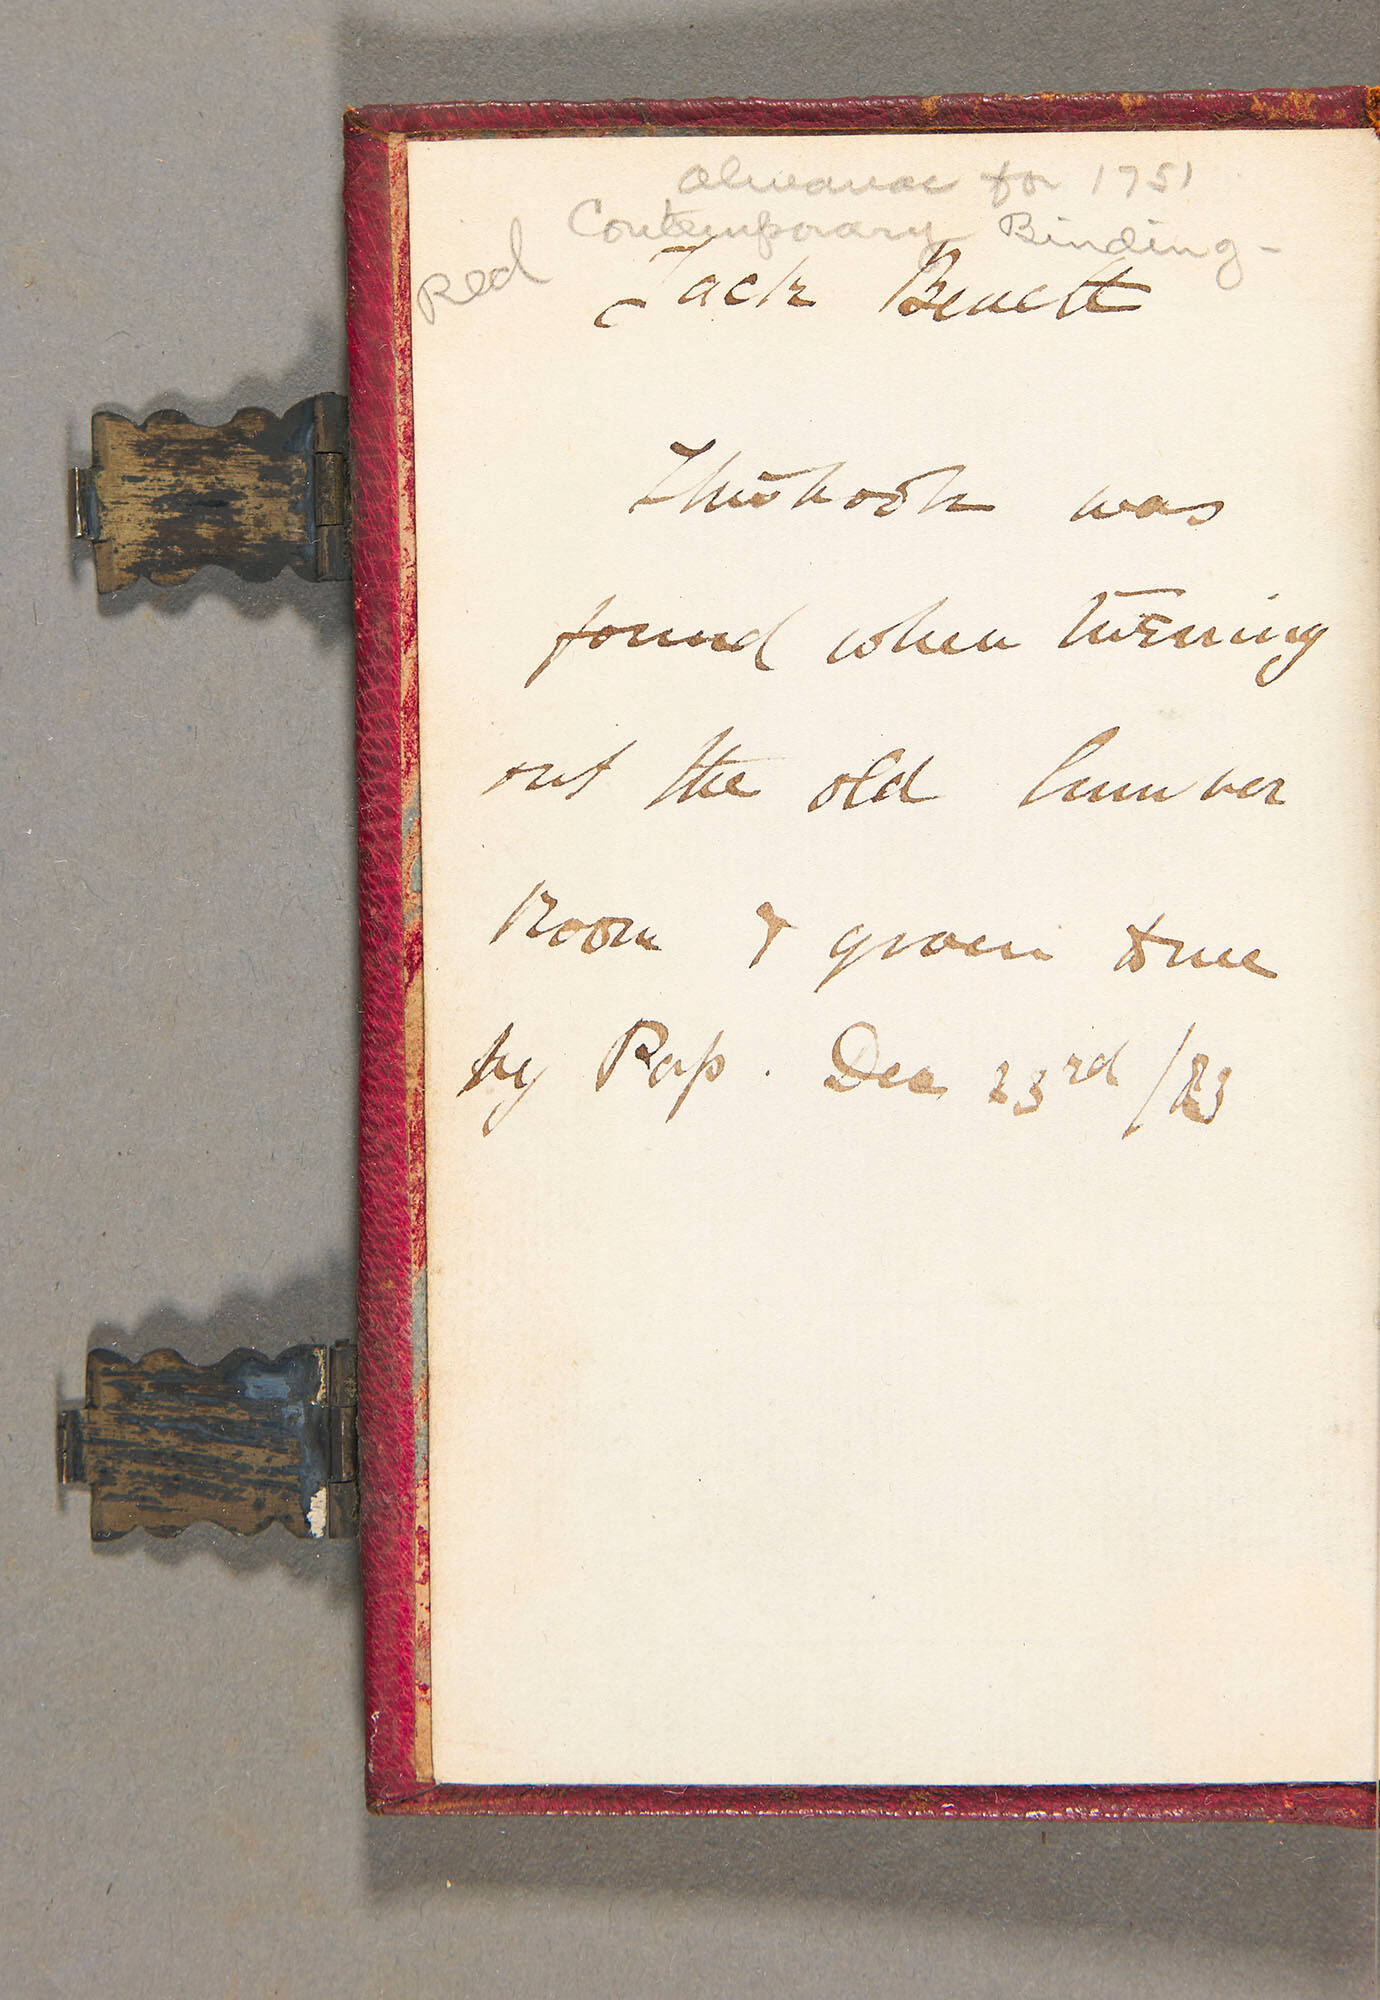 Almanac for 1751
Contemporary Binding -
Red
Jack Benett
This book was
found when turning
out the old lumber
Room & given to me
by Pap. Dec 23rd /83